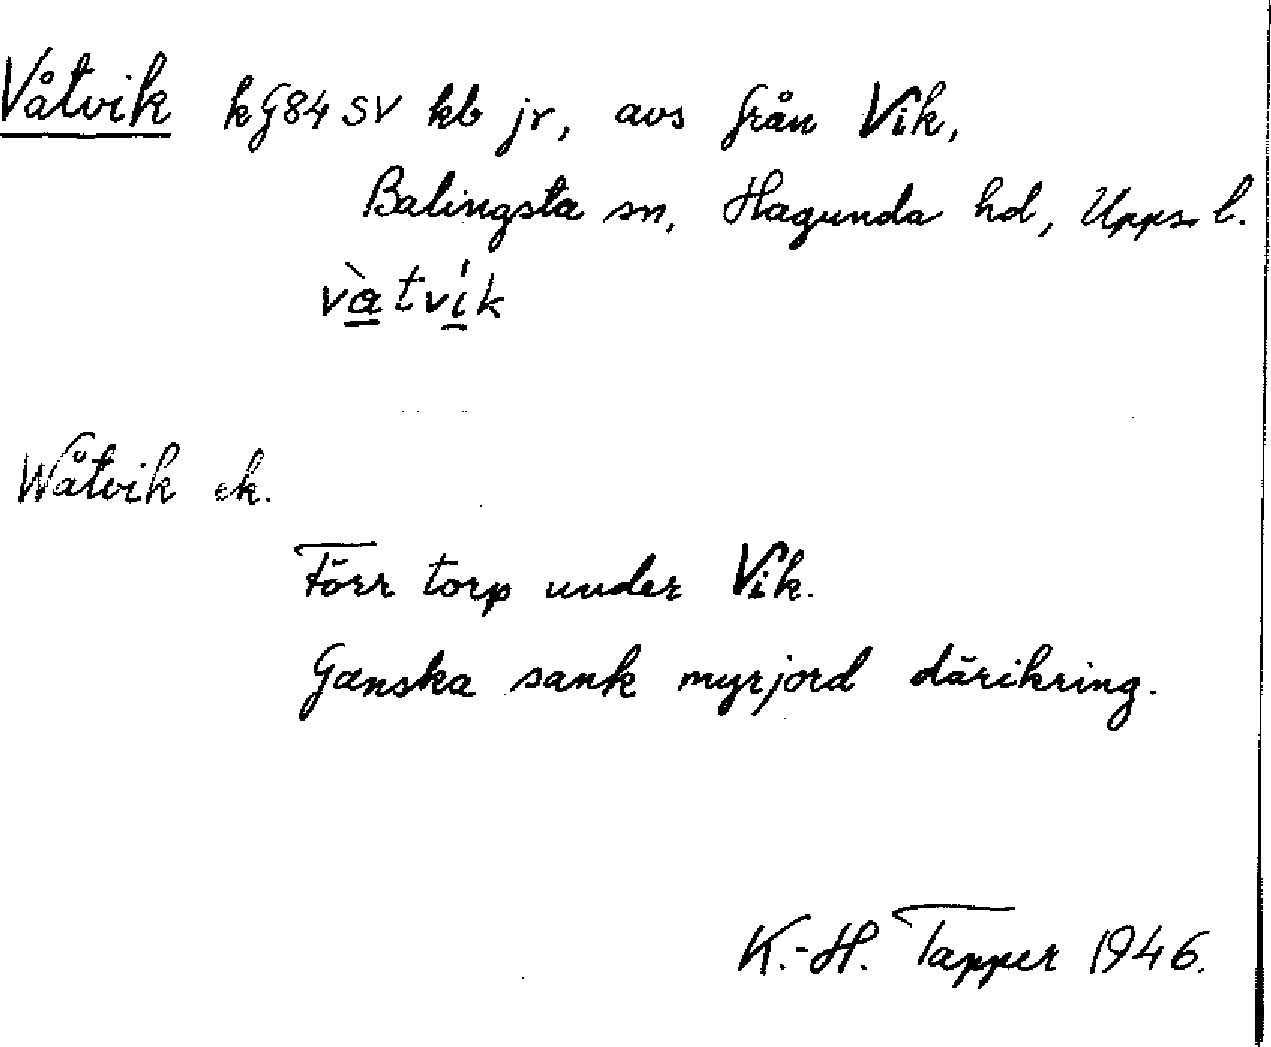 Våtvik kG84SV kb jr, avs från Vik,
Balingsta sn, Hagunda hd, Upps. l.
và̱tví̱k
Wåtvik ek.
Förr torp under Vik.
Ganska sank myrjord däri kring.
K.-H. Tapper 1946.